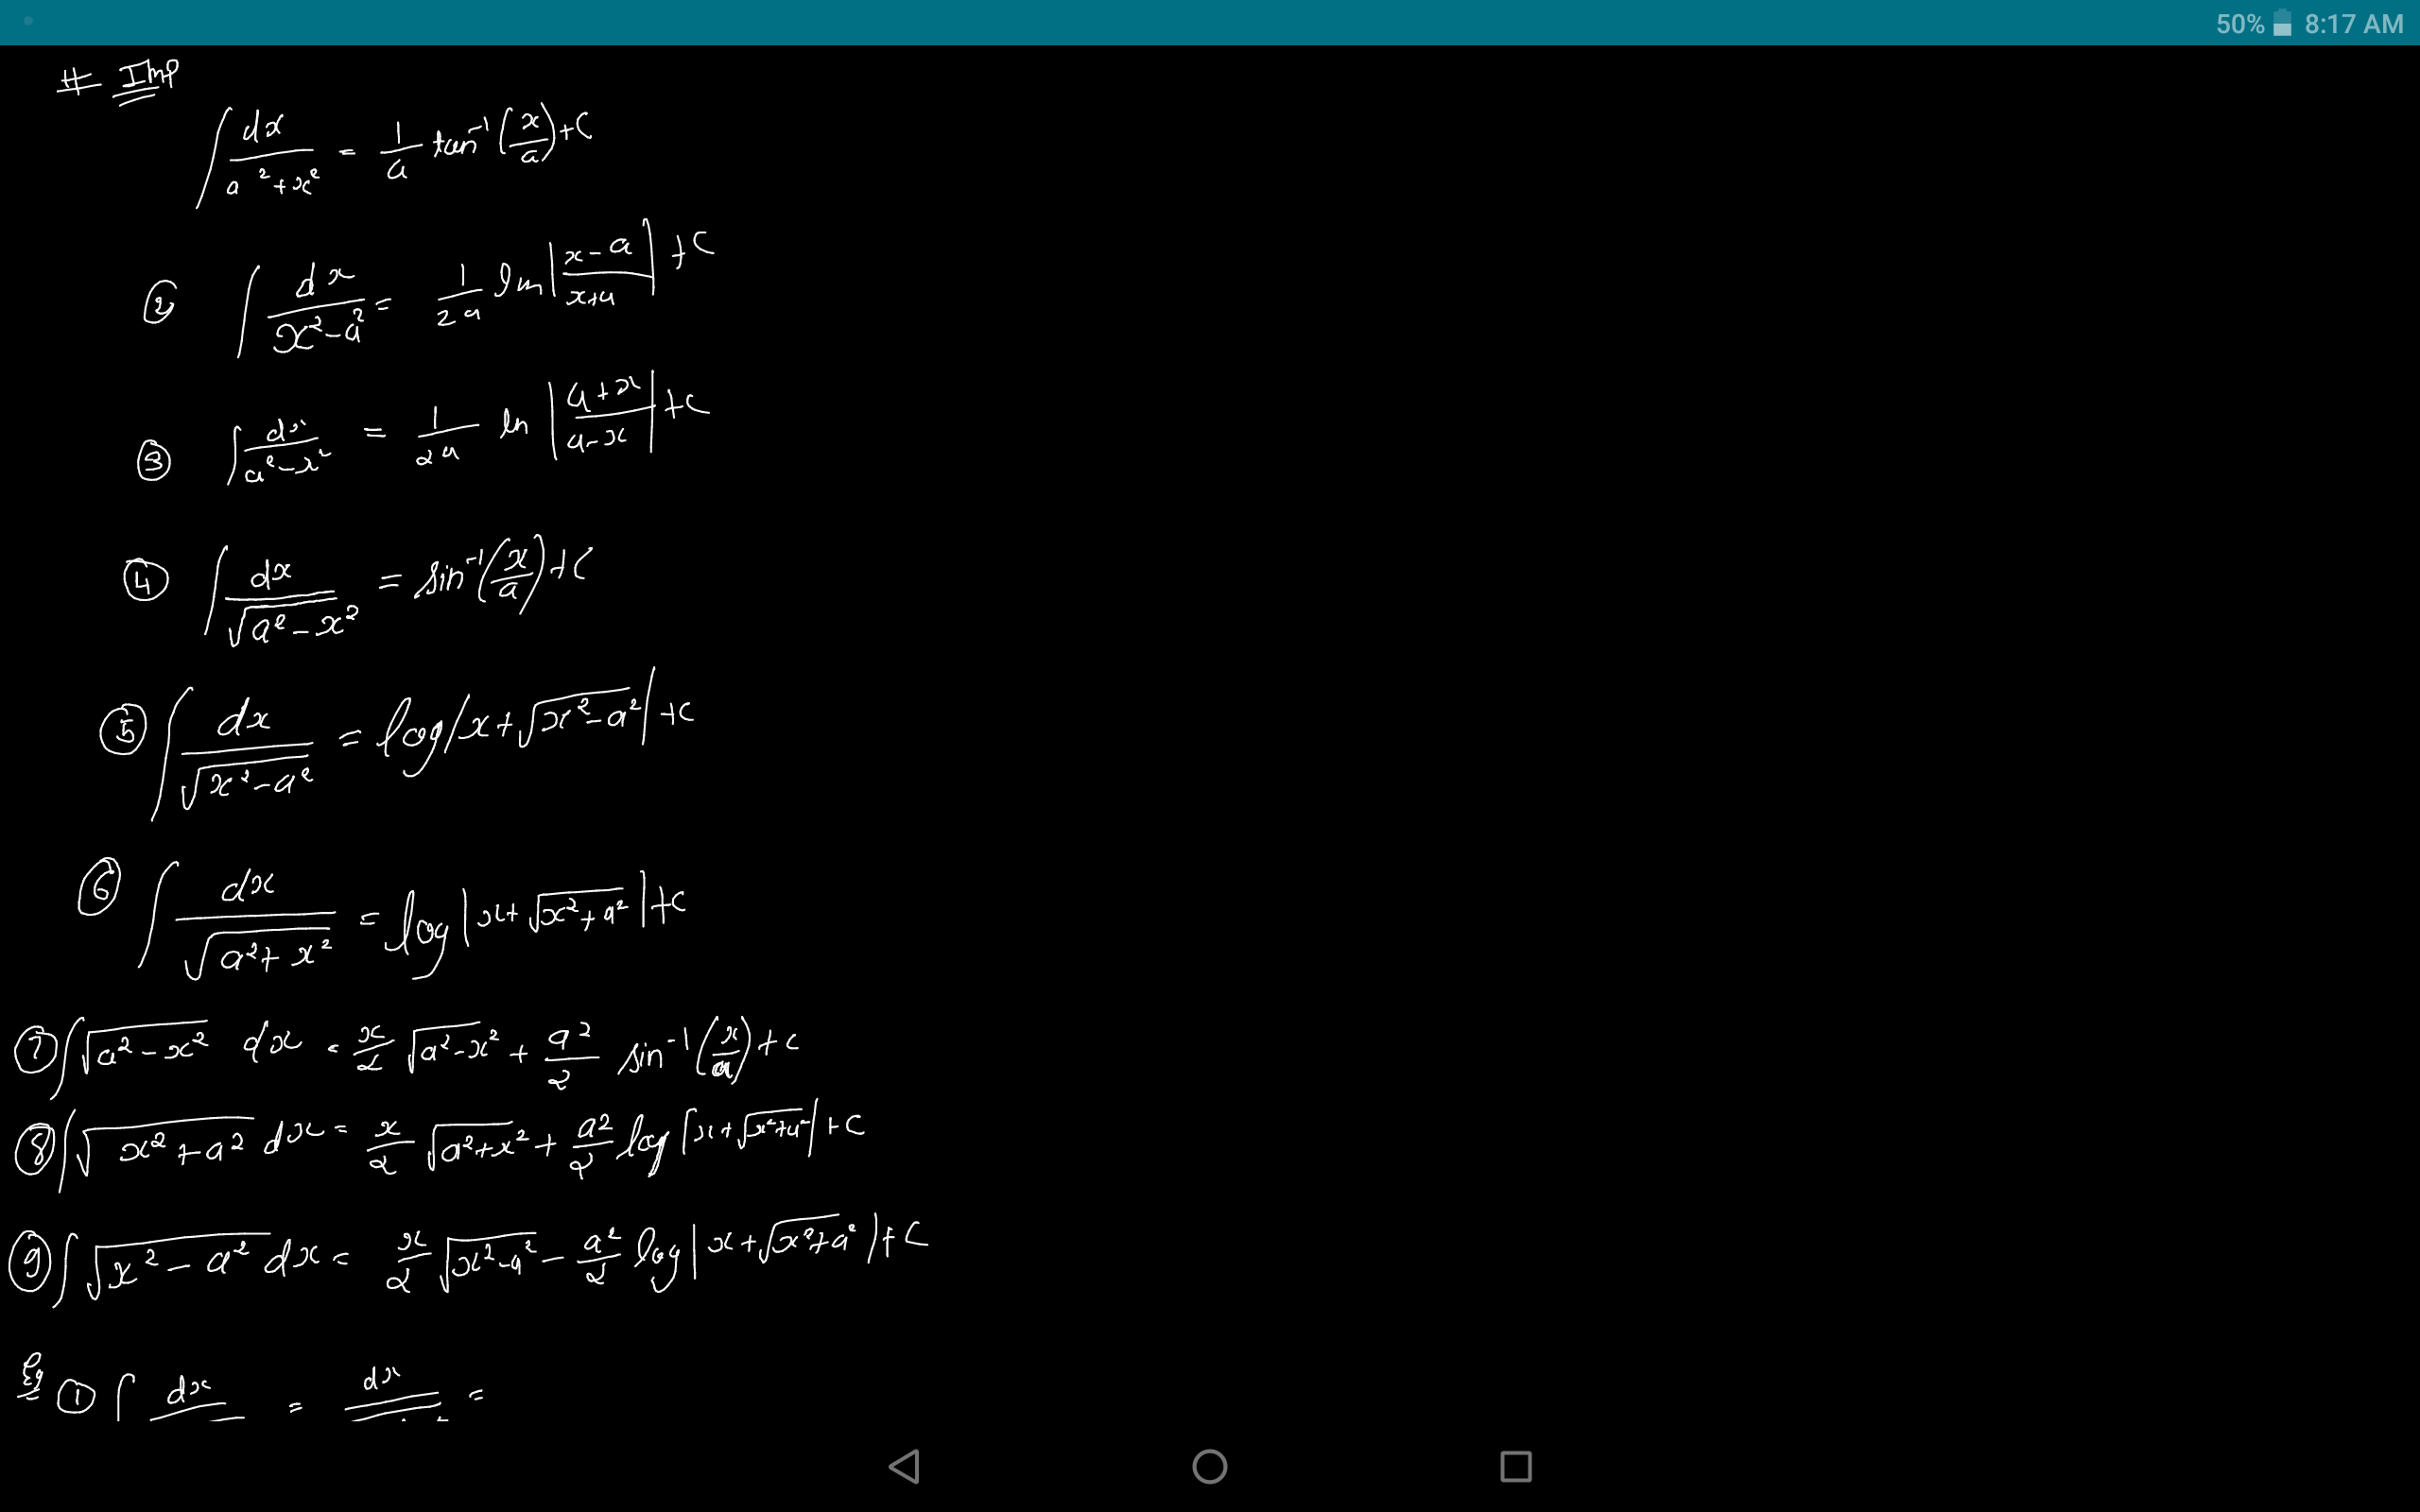 50% 8:17 AM
# Imp
∫ dx/(a²+x²) = 1/a tan⁻¹(x/a)+C
② ∫ dx/(x²-a²) = 1/2a ln|(x-a)/(x+a)| +C
③ ∫ dx/(a²-x²) = 1/2a ln |(a+x)/(a-x)| +C
④ ∫ dx/√(a²-x²) = sin⁻¹(x/a)+C
⑤ ∫ dx/√(x²-a²) = log|x+√(x²-a²)| +C
⑥ ∫ dx/√(a²+x²) = log|x+√(x²+a²)|+C
⑦ ∫√(a²-x²) dx = x/2 √(a²-x²) + a²/2 sin⁻¹(x/a)+C
⑧ ∫√(x²+a²) dx = x/2 √(a²+x²) + a²/2 log|x+√(x²+a²)|+C
⑨ ∫√(x²-a²) dx = x/2 √(x²-a²) - a²/2 log|x+√(x²+a²)|+C
Eg ① ∫ dx = dx =